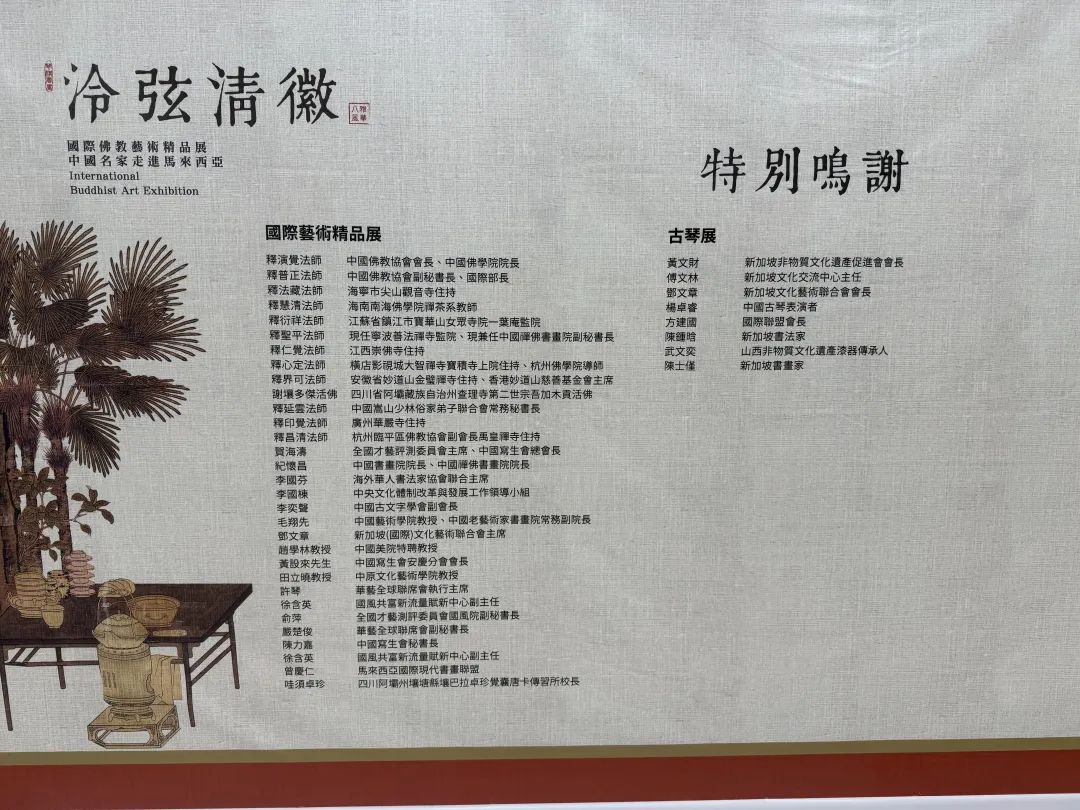 泠弦清徽
八雅
風華
國際佛教藝術精品展
中國名家走進馬來西亞
International
Buddhist Art Exhibition
特別鳴謝
國際藝術精品展
釋演覺法師 中國佛教協會會長、中國佛學院院長
釋普正法師 中國佛教協會副秘書長、國際部長
釋法藏法師 海寧市尖山觀音寺住持
釋慧清法師 海南南海佛學院禪茶系教師
釋衍祥法師 江蘇省鎮江市寶華山女眾寺院一葉庵監院
釋聖平法師 現任寧波善法禪寺監院、現兼任中國禪佛書畫院副秘書長
釋仁覺法師 江西崇佛寺住持
釋心定法師 橫店影視城大智禪寺寶積寺上院住持、杭州佛學院導師
釋界可法師 安徽省妙道山金璧禪寺住持、香港妙道山慈善基金會主席
謝壤多傑活佛 四川省阿壩藏族自治州查理寺第二世宗吾加木貢活佛
釋延雲法師 中國嵩山少林俗家弟子聯合會常務秘書長
釋印覺法師 廣州華嚴寺住持
釋昌清法師 杭州臨平區佛教協會副會長禹皇禪寺住持
賀海濤 全國才藝評測委員會主席、中國寫生會總會長
紀懷昌 中國書畫院院長、中國禪佛書畫院院長
李國芬 海外華人書法家協會聯合主席
李國棟 中央文化體制改革與發展工作領導小組
李奕聲 中國古文字學會副會長
毛翔先 中國藝術學院教授、中國老藝術家書畫院常務副院長
鄧文章 新加坡(國際)文化藝術聯合會主席
趙學林教授 中國美院特聘教授
黃設來先生 中國寫生會安慶分會會長
田立曉教授 中原文化藝術學院教授
許琴 華藝全球聯席會執行主席
徐含英 國風共富新流量賦新中心副主任
俞萍 全國才藝測評委員會國風院副秘書長
嚴楚俊 華藝全球聯席會副秘書長
陳力嘉 中國寫生會秘書長
徐含英 國風共富新流量賦新中心副主任
曾慶仁 馬來西亞國際現代書畫聯盟
哇須卓珍 四川阿壩州壤塘縣壤巴拉卓珍覺囊唐卡傳習所校長
古琴展
黃文財 新加坡非物質文化遺產促進會會長
傅文林 新加坡文化交流中心主任
鄧文章 新加坡文化藝術聯合會會長
楊卓睿 中國古琴表演者
方建國 國際聯盟會長
陳鍾晗 新加坡書法家
武文奕 山西非物質文化遺產漆器傳承人
陳士僅 新加坡書畫家